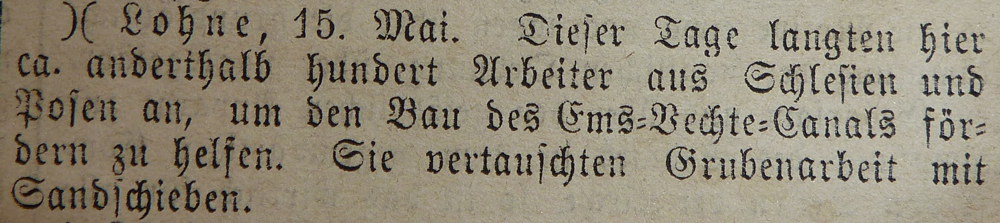 )( Lohne, 15. Mai. Dieser Tage langten hier
ca. anderthalb hundert Arbeiter aus Schlesien und
Posen an, um den Bau des Ems-Vechte-Canals för-
dern zu helfen. Sie vertauschten Grubenarbeit mit
Sandschieben.